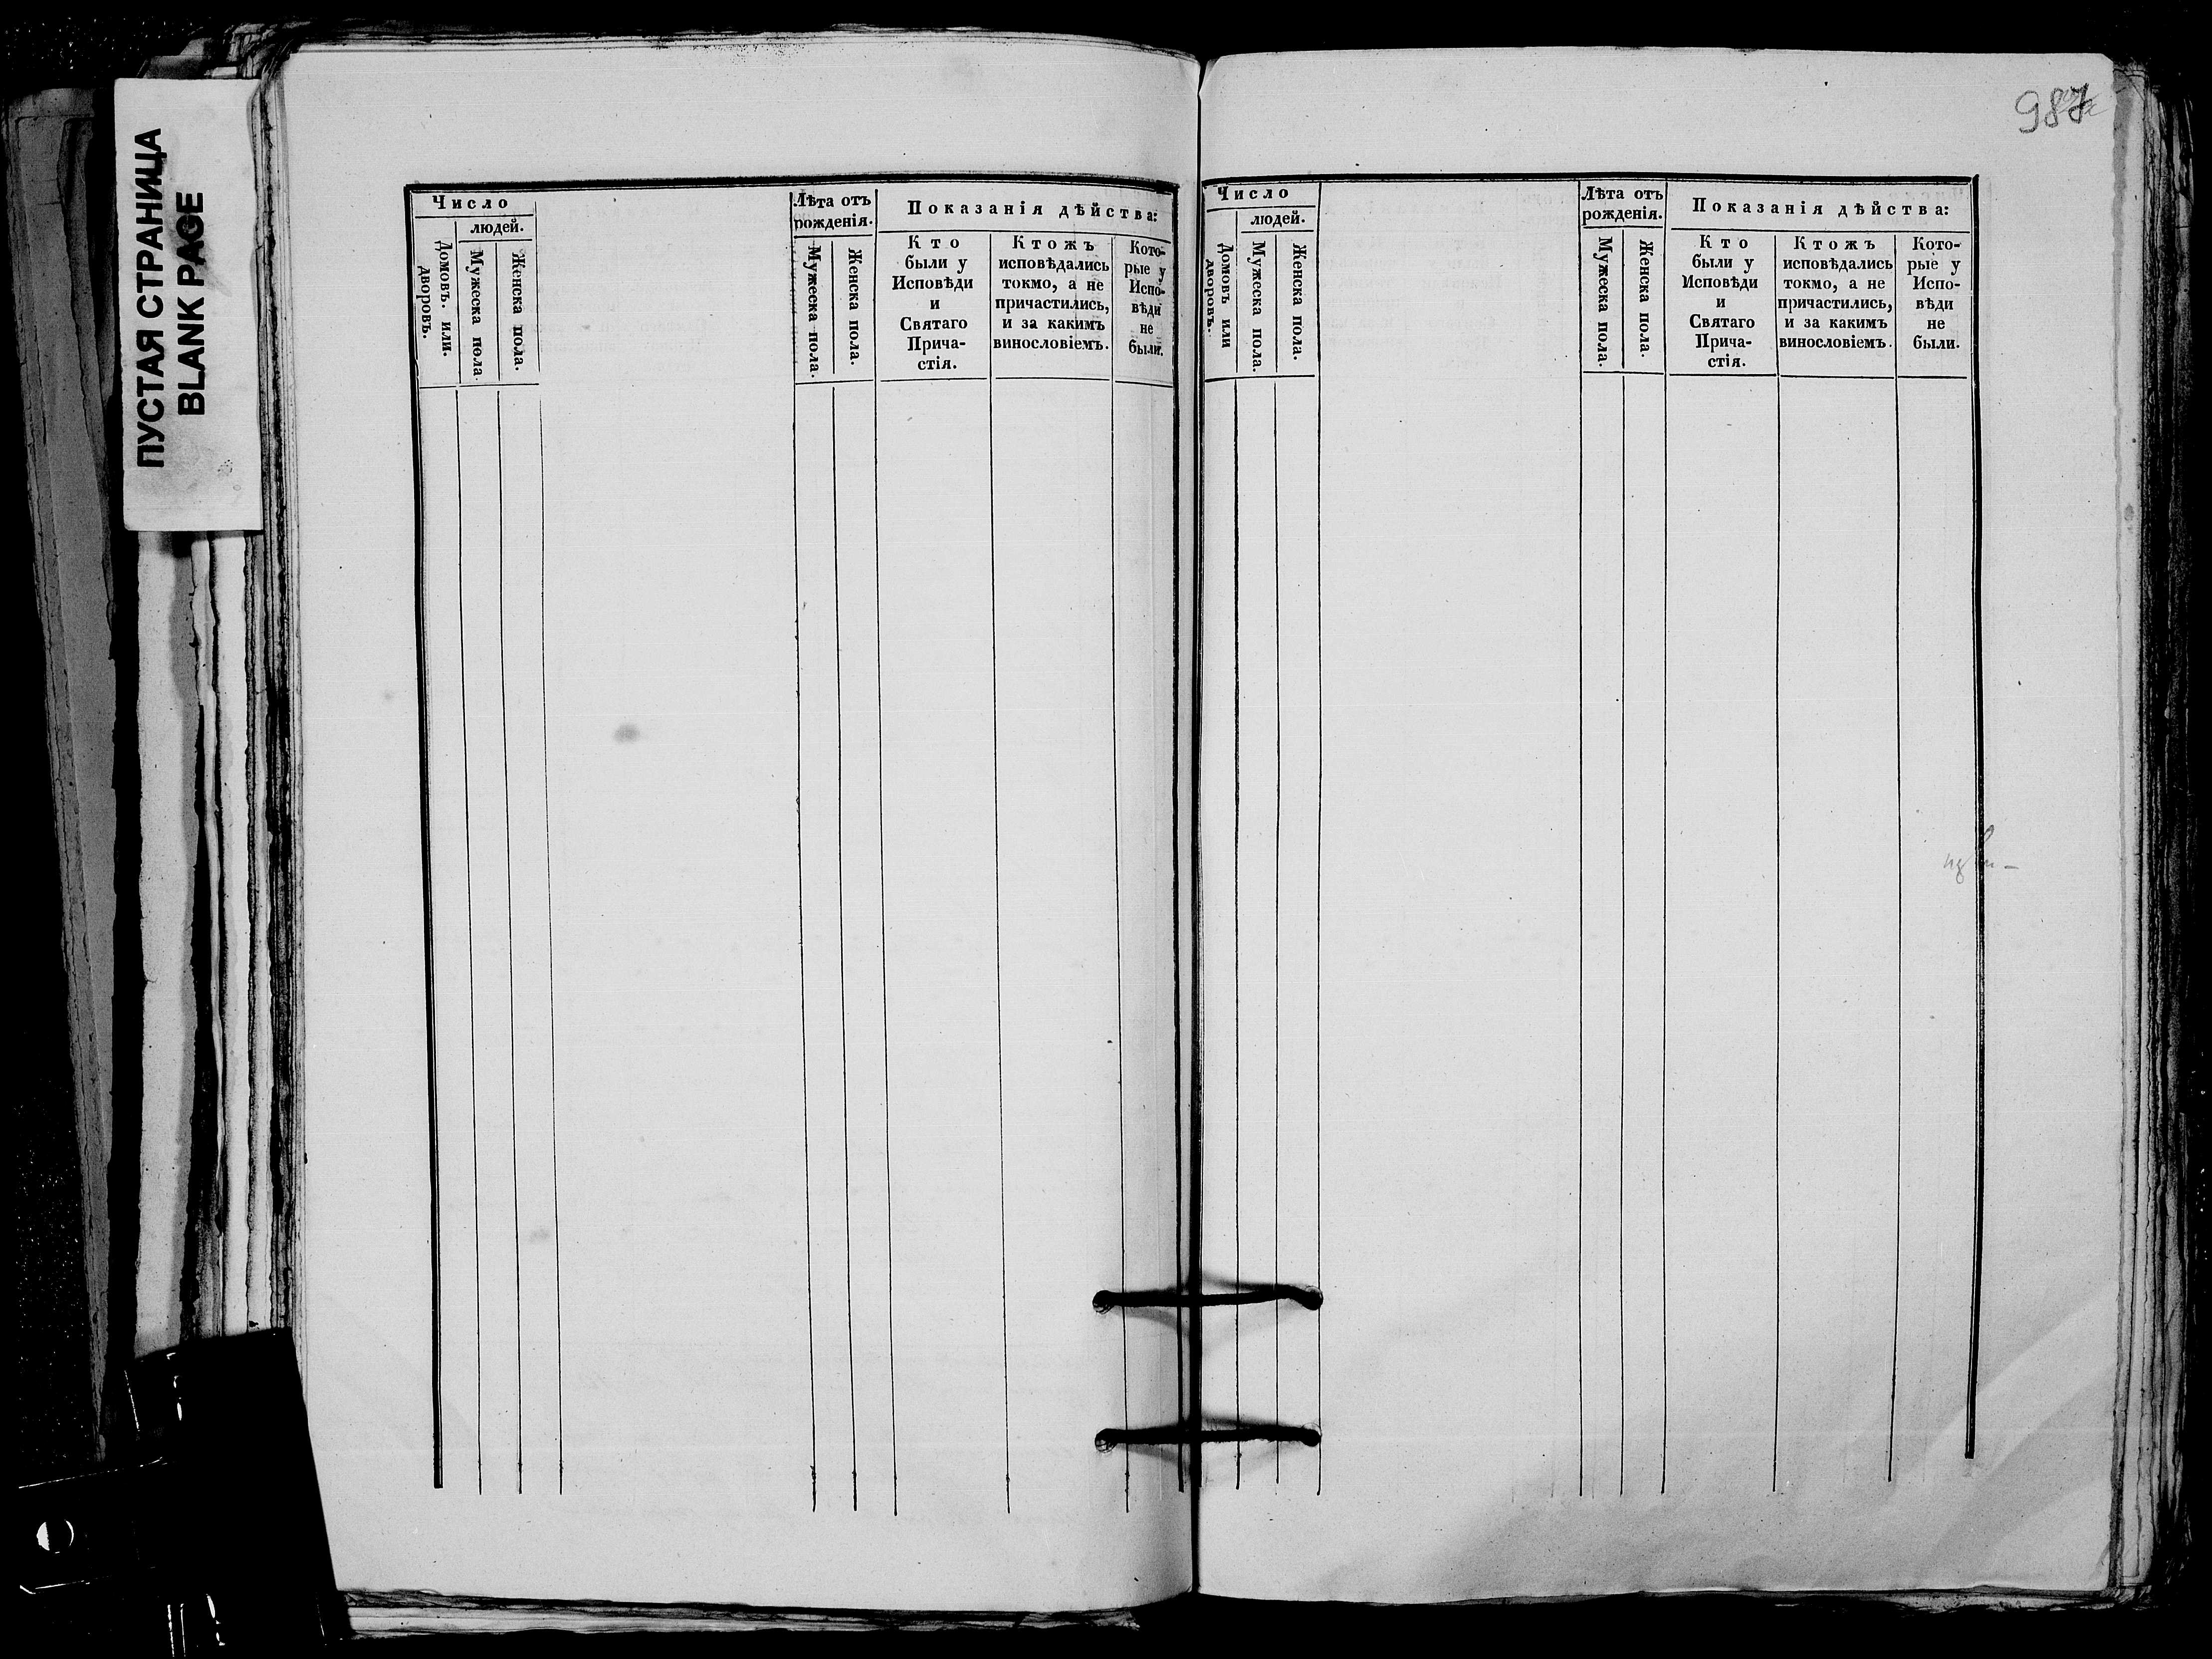 ПУСТАЯ СТРАНИЦА
BLANK PAGE
987
Число
людей.
Домовъ. или.
дворовъ.
Мужеска пола.
Женска пола.
Лѣта отъ
рожденія.
Мужеска пола.
Женска пола.
Показанія дѣйства:
Кто
были у
Исповѣди
и
Святаго
Прича-
стія.
Ктожъ
исповѣдались
токмо, а не
причастились,
и за какимъ
винословіемъ.
Кото-
рые у
Испо-
вѣди
не
были.
Число
людей.
Домовъ или
дворовъ.
Мужеска пола.
Женска пола.
Лѣта отъ
рожденія.
Мужеска пола.
Женска пола.
Показанія дѣйства:
Кто
были у
Исповѣди
и
Святаго
Прича-
стія.
Ктожъ
исповѣдались
токмо, а не
причастились,
и за какимъ
винословіемъ.
Кото-
рые у
Испо-
вѣди
не
были.